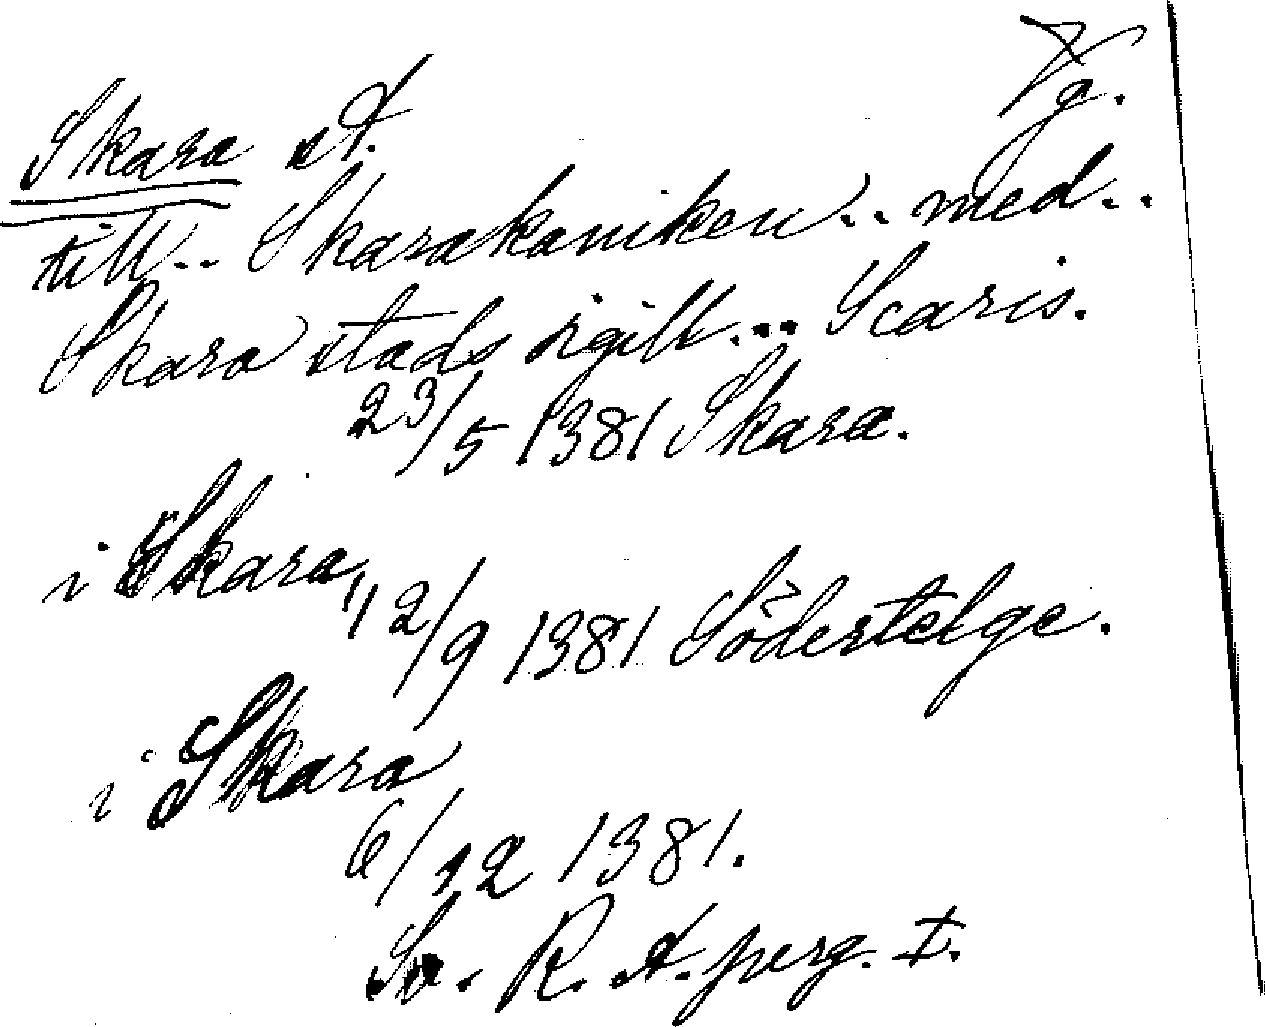 Vg.
Skara st.
till.. Skarakaniken.. med..
Skara stads sigill... Scaris.
23/5 1381 Skara.
i Skara
12/9 1381 Södertelge.
i Skara
6/12 1381.
Sv. R. A. perg. I.